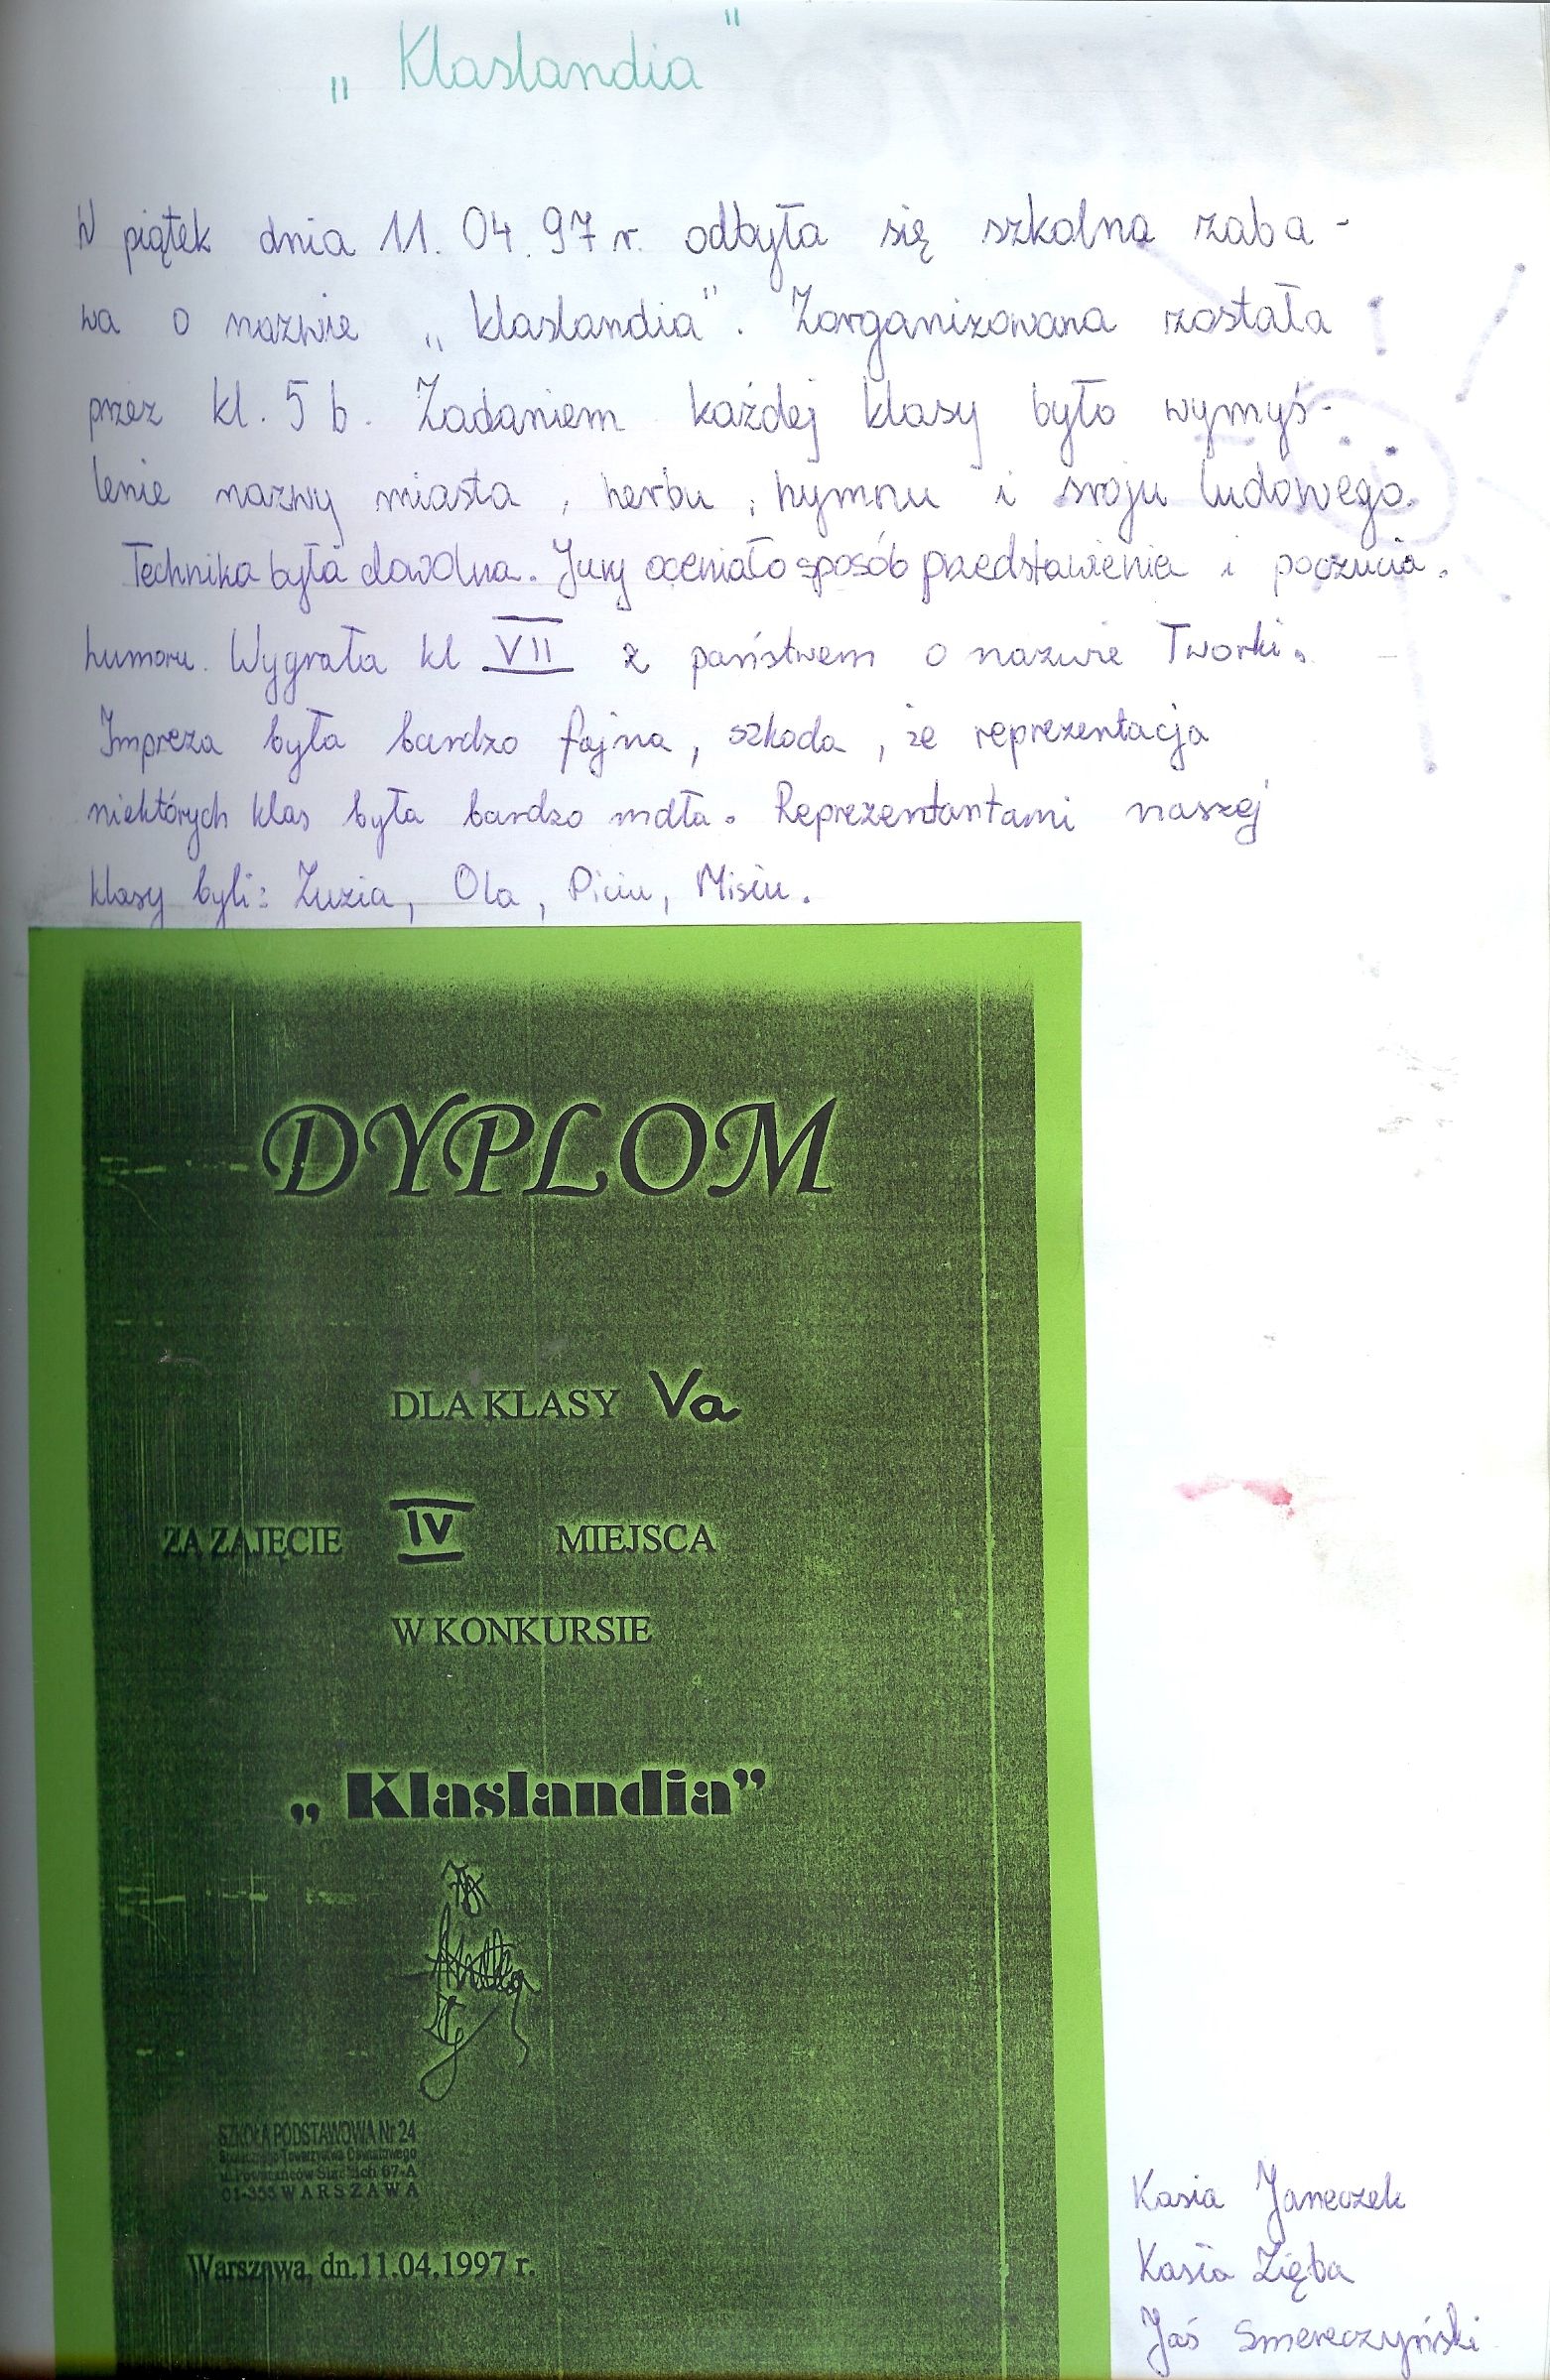 „Klaslandia"
W piątek dnia 11.04.97 r. odbyła się szkolna zaba-
wa o nazwie „klaslandia". Zorganizowana została
przez kl. 5 b. Zadaniem każdej klasy było wymyś-
lenie nazwy miasta, herbu, hymnu i sroju ludowego.
Technika była dowolna. Jury oceniało sposób przedstawienia i poczucia.
humoru. Wygrała kl VII z państwem o nazwie Tworki.
Impreza była bardzo fajna, szkoda, że reprezentacja
niektórych klas była bardzo mdła. Reprezentantami naszej
klasy byli: Zuzia, Ola, Piciu, Misiu.
DYPLOM
DLA KLASY Va
ZA ZAJĘCIE IV MIEJSCA
W KONKURSIE
„Klaslandia”
SZKOŁA PODSTAWOWA Nr 24
Społecznego Towarzystwa Oświatowego
ul. Powstańców Śląskich 67-A
01-355 WARSZAWA
Warszawa, dn.11.04.1997 r.
Kasia Janeczek
Kasia Zięba
Jaś Smereczyński